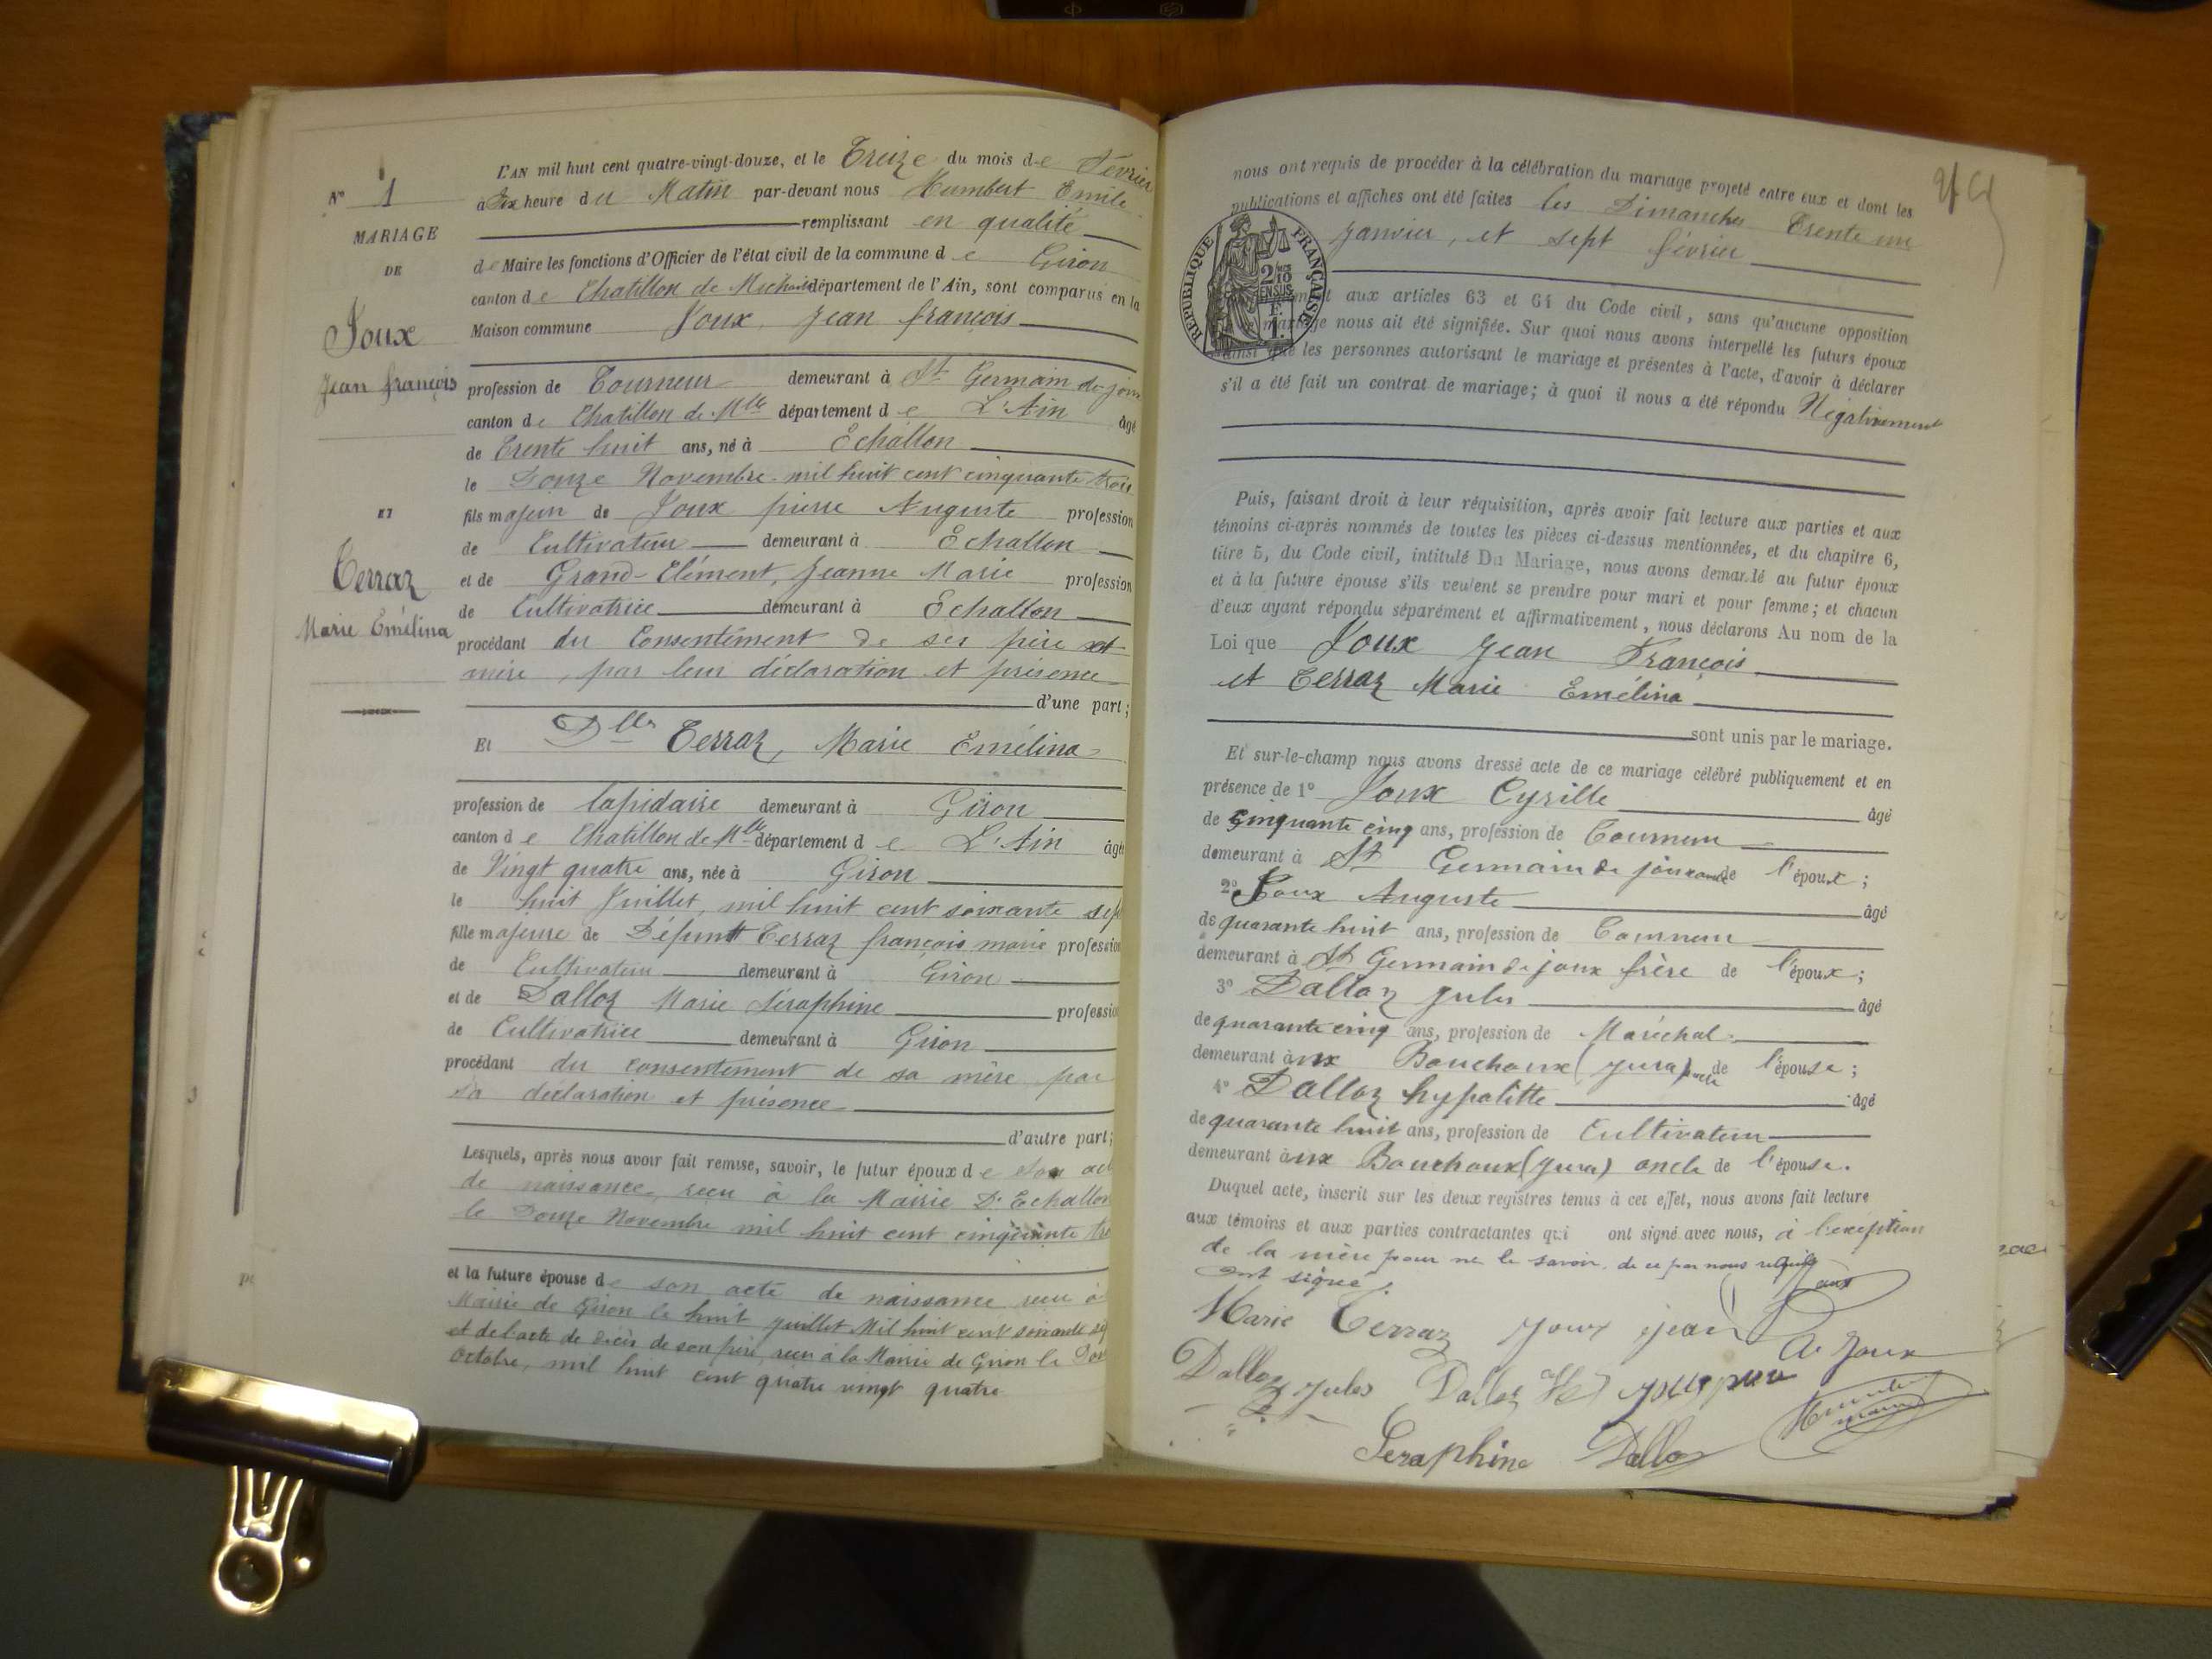 N° 1
MARIAGE
DE
Joux
Jean françois
ET
Terraz
Marie Emélina
L'AN mil huit cent quatre-vingt-douze, et le Treize du mois de Février
à Dix heure du Matin par-devant nous Humbert Emile
remplissant en qualité
de Maire les fonctions d'Officier de l'état civil de la commune de Giron
canton de Chatillon de Michaille département de l'Ain, sont comparus en la
Maison commune Joux, Jean françois
profession de Tourneur demeurant à St Germain de joux
canton de Chatillon de Mlle département de L'Ain âgé
de Trente huit ans, né à Echallon
le Douze Novembre mil huit cent cinquante trois
fils majeur de Joux pierre Auguste profession
de Cultivateur demeurant à Echallon
et de Grand-Clément, Jeanne Marie profession
de Cultivatrice demeurant à Echallon
procédant du Consentement de ses père et
mère, par leur déclaration et présence
d'une part;
Et Dlle Terraz, Marie Emélina
profession de lapidaire demeurant à Giron
canton de Chatillon de Mlle département de L'Ain âgé
de Vingt quatre ans, née à Giron
le huit Juillet, mil huit cent soixante sept
fille majeure de Défunt Terraz françois marie profession
de Cultivateur demeurant à Giron
et de Dalloz Marie Séraphine profession
de Cultivatrice demeurant à Giron
procédant du consentement de sa mère par
sa déclaration et présence
d'autre part;
Lesquels, après nous avoir fait remise, savoir, le futur époux de son acte
de naissance, reçu à la Mairie D'Echallon
le Douze Novembre mil huit cent cinquante
et la future épouse de son acte de naissance reçu à
Mairie de Giron le huit juillet Mil huit cent soixante sept
et de l'acte de décès de son père, reçu à la Mairie de Giron le
Octobre, mil huit cent quatre vingt quatre
nous ont requis de procéder à la célébration du mariage projeté entre eux et dont les
publications et affiches ont été faites les Dimanches Trente un
Janvier, et sept février
RÉPUBLIQUE FRANÇAISE
2/10
EN SUS
1F.
aux articles 63 et 64 du Code civil, sans qu'aucune opposition
mariage nous ait été signifiée. Sur quoi nous avons interpellé les futurs époux
ainsi que les personnes autorisant le mariage et présentes à l'acte, d'avoir à déclarer
s'il a été fait un contrat de mariage; à quoi il nous a été répondu Négativement
Puis, faisant droit à leur réquisition, après avoir fait lecture aux parties et aux
témoins ci-après nommés de toutes les pièces ci-dessus mentionnées, et du chapitre 6,
titre 5, du Code civil, intitulé Du Mariage, nous avons demandé au futur époux
et à la future épouse s'ils veulent se prendre pour mari et pour femme; et chacun
d'eux ayant répondu séparément et affirmativement, nous déclarons Au nom de la
Loi que Joux Jean François
et Terraz Marie Emélina
sont unis par le mariage.
Et sur-le-champ nous avons dressé acte de ce mariage célébré publiquement et en
présence de 1° Joux Cyrille âgé
de Cinquante cinq ans, profession de Tourneur
demeurant à St Germain de joux de l'époux;
2° Joux Auguste âgé
de quarante huit ans, profession de Tourneur
demeurant à St Germain de joux frère de l'époux;
3° Dalloz Jules âgé
de quarante cinq ans, profession de Maréchal
demeurant aux Bouchoux (Jura) oncle de l'épouse;
4° Dalloz hypolitte âgé
de quarante huit ans, profession de Cultivateur
demeurant aux Bouchoux (Jura) oncle de l'épouse.
Duquel acte, inscrit sur les deux registres tenus à cet effet, nous avons fait lecture
aux témoins et aux parties contractantes qui ont signé avec nous, à l'exéption
de la mère pour ne le savoir, de ce par nous requis
ont signé.
Joux
Marie Terraz Joux jean A. Joux
Dalloz Jules Dalloz
Humbert
maire
Seraphine Dalloz